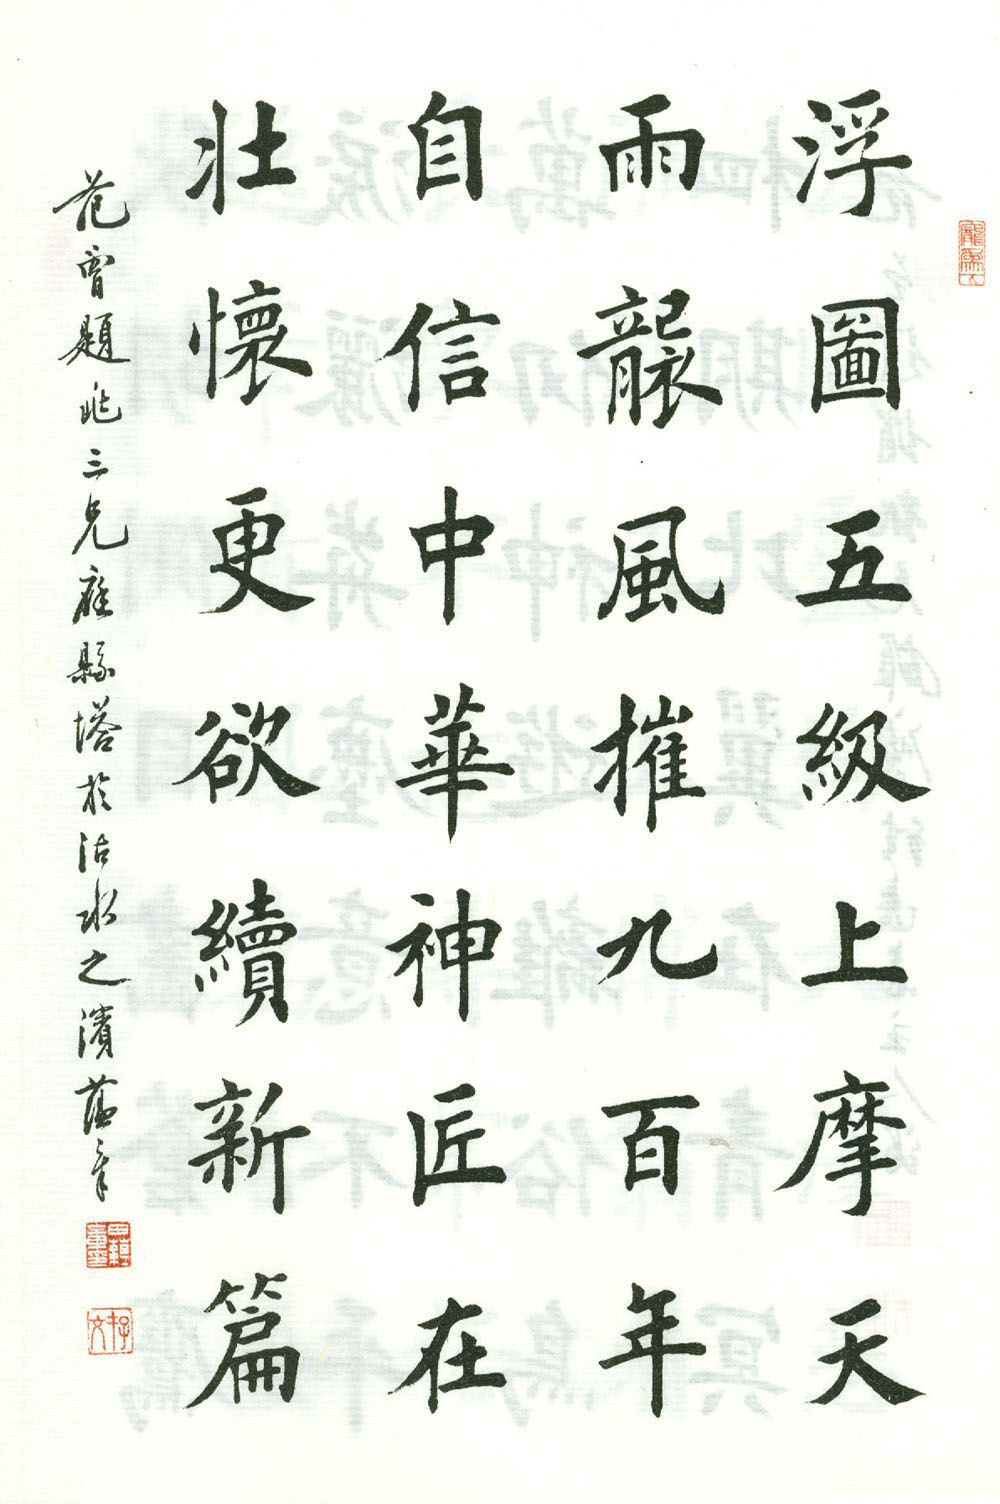 浮圖五級上摩天
雨襲風摧九百年
自信中華神匠在
壯懷更欲續新篇
范曾題兆三兄應縣塔於沽水之濱